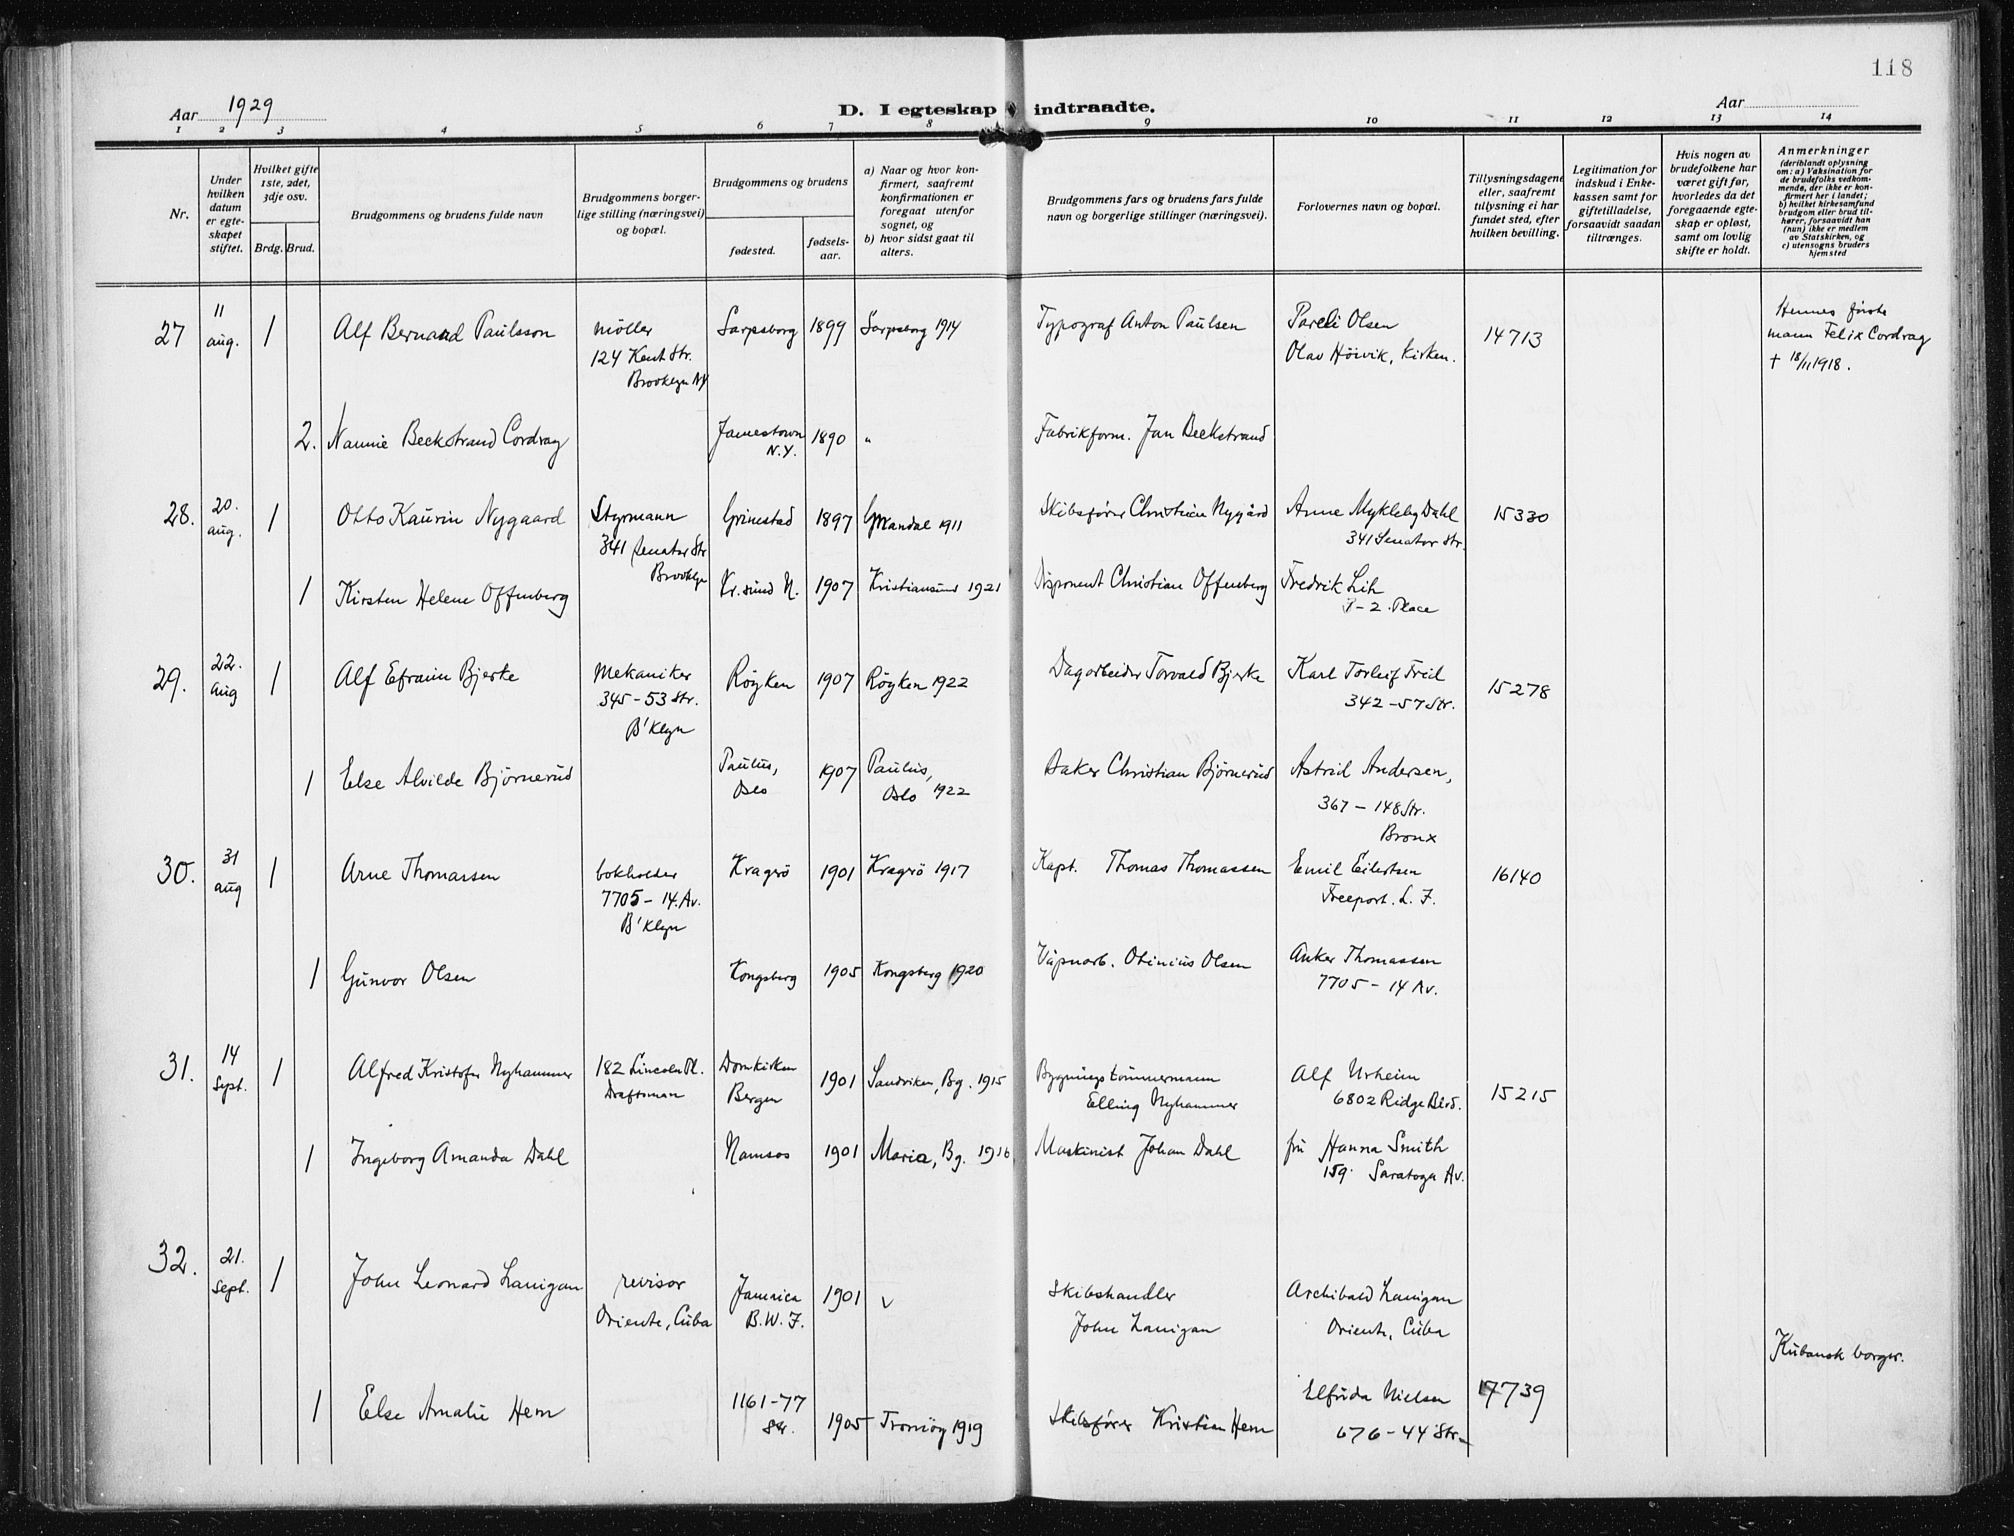 118
Aar 1929
D. I egteskap indtraadte.
Aar
1 2 3 4 5 6 7 8 9 10 11 12 13 14
Nr.
Under hvilken datum er egte-skapet stiftet.
Hvilket gifte 1ste, 2det, 3dje osv.
Brdg. Brud.
Brudgommens og brudens fulde navn
Brudgommens borger-lige stilling (næringsvei) og bopæl.
Brudgommens og brudens
fødested.
fødsels-aar.
a) Naar og hvor kon-firmert, saafremt konfirmationen er foregaat utenfor sognet, og
b) hvor sidst gaat til alters.
Brudgommens fars og brudens fars fulde navn og borgerlige stillinger (næringsvei).
Forlovernes navn og bopæl.
Tillysningsdagene eller, saafremt tillysning ei har fundet sted, efter hvilken bevilling.
Legitimation for indskud i Enke-kassen samt for giftetilladelse, forsaavidt saadan tiltrænges.
Hvis nogen av brudefolkene har været gift før, hvorledes da det foregaaende egte-skap er opløst, samt om lovlig skifte er holdt.
Anmerkninger
(deriblandt oplysning om: a) Vaksination for de brudefolks vedkom-mende, der ikke er kon-firmert her i landet; b) hvilket kirkesamfund brudgom eller brud til-hører, forsaavidt han (hun) ikke er medlem av Statskirken, og c) utensogns bruders hjemsted
27 11 aug. 1 Alf Bernard Paulsson
møller
124 Kent Str.
Brooklyn N.Y.
Sarpsborg 1899 Sarpsborg 1914
Typograf Anton Paulsen
Pareli Olsen
Olav Höivik, Kirken.
14713
Hennes første
mann Felix Cordray
† 18/11 1918.
2. Nannie Beckstrand Cordray
Jamestown
N.Y.
1890 "
Fabrikform. Jan Beckstrand
28. 20. aug. 1 Otto Kaurin Nygaard
Styrmann
341 Senator Str
Brooklyn
Grinestad 1897 Mandal 1911
Skibsfører Christian Nygård
Anne Mykleby Dahl
341 Senator Str.
15330
1 Kirsten Helene Offenberg
Kr.sund N. 1907 Kristiansund 1921
Disponent Christian Offenberg
Fredrik Lih
7-2. Place
29. 22. Aug 1 Alf Efraim Bjerke
Mekaniker
345-53 Str.
B'klyn
Røyken 1907 Røyken 1922
Dagarbeider Torvald Bjerke
Karl Torleif Freil
342-57 Str.
15278
1 Else Alvilde Bjørnerud
Paulus,
Oslo
1907 Paulus,
Oslo 1922
Baker Christian Bjørnerud
Astrid Andersen,
367-148 Str.
Bronx
30. 31 aug 1 Arne Thomassen
bokholder
7705-14. Av.
B'klyn
Kragerö 1901 Kragerö 1917
Kapt. Thomas Thomassen
Emil Eilertsen
Freeport. L. I.
16140
1 Gunvor Olsen
Kongsberg 1905 Kongsberg 1920
Våpnarb. Otinius Olsen
Anker Thomassen
7705-14 Av.
31. 14 Sept. 1 Alfred Kristofer Nyhammer
182 Lincoln Pl.
Draftsman
Domkirken
Bergen
1901 Sandviken, Bg. 1915
Bygningstømmermann
Elling Nyhammer
Alf Urheim
6802 Ridge Blvd.
15215
1 Ingeborg Amanda Dahl
Namsos 1901 Maria, Bg. 1916
Maskinist Johan Dahl
fru Hanna Smith
159. Saratoga Av.
32. 21. Sept. 1 John Leonard Lanigan
revisor
Oriente, Cuba
Jamaica
B.W.I.
1901 v
Skibshandler
John Lanigan
Archibald Lanigan
Oriente, Cuba
Kubansk borger.
1 Else Amalie Hem
1161-77
Str.
1905 Tromøy 1919
Skibsfører Kristian Hem
Elfrida Nielsen
676-44 Str-
17739